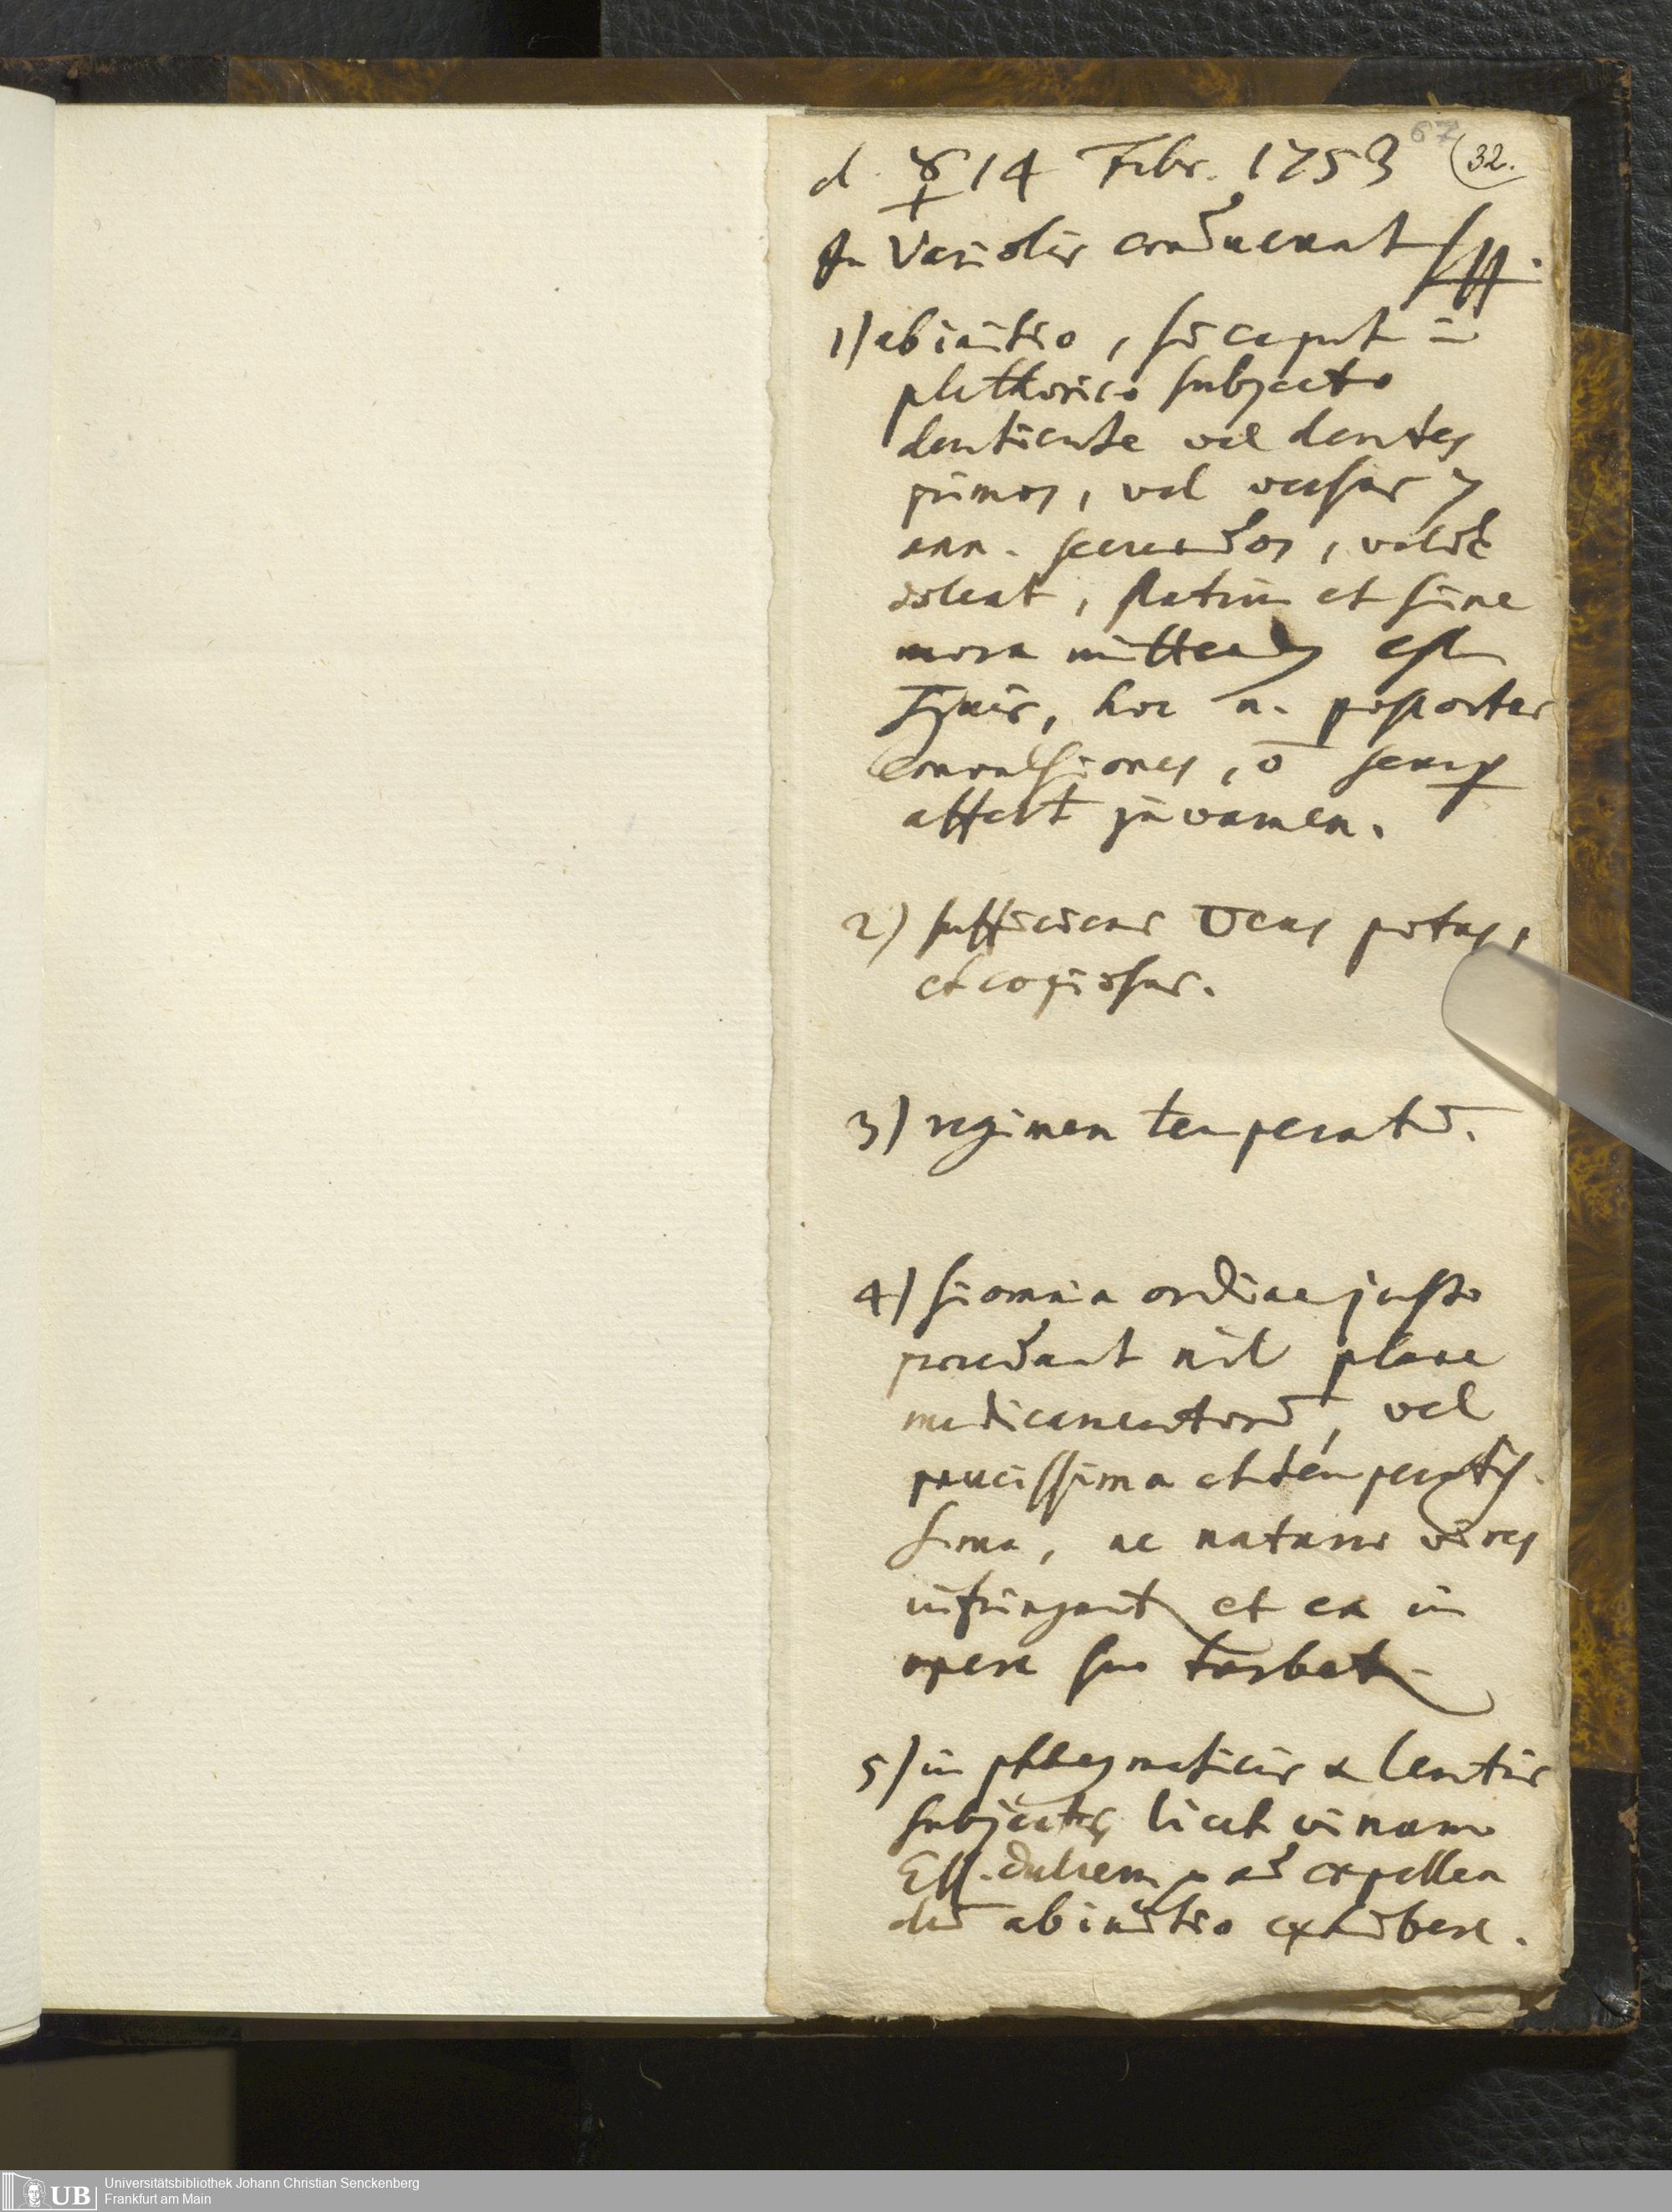 67
(32.
d. ☿ 14 Febr. 1753
In Variolis conducunt sqq.
1) ab initio, si caput in
plethorico subjecto
dentiente vel dentes
primos, vel versus 7
ann. secundos, valde
doleat, statim et sine
mora mittendus est
hoc n. postpositus
Convulsiones, o semp
affert juvamen.
2) sufficiens potus,
et copiosus.
3) regimen temperatū.
4) si omnia ordine justo
procedant nil plane
medicamentorū, vel
paucissima et temperatis-
sima, ne naturae vires
infringant et ea in
opere suo turbet.
5) in phlegmaticis & lentis
subjectis licet vinum
Ess. dulcem p ad expellen
dū ab initio exhibere.
UB
Universitätsbibliothek Johann Christian Senckenberg
Frankfurt am Main